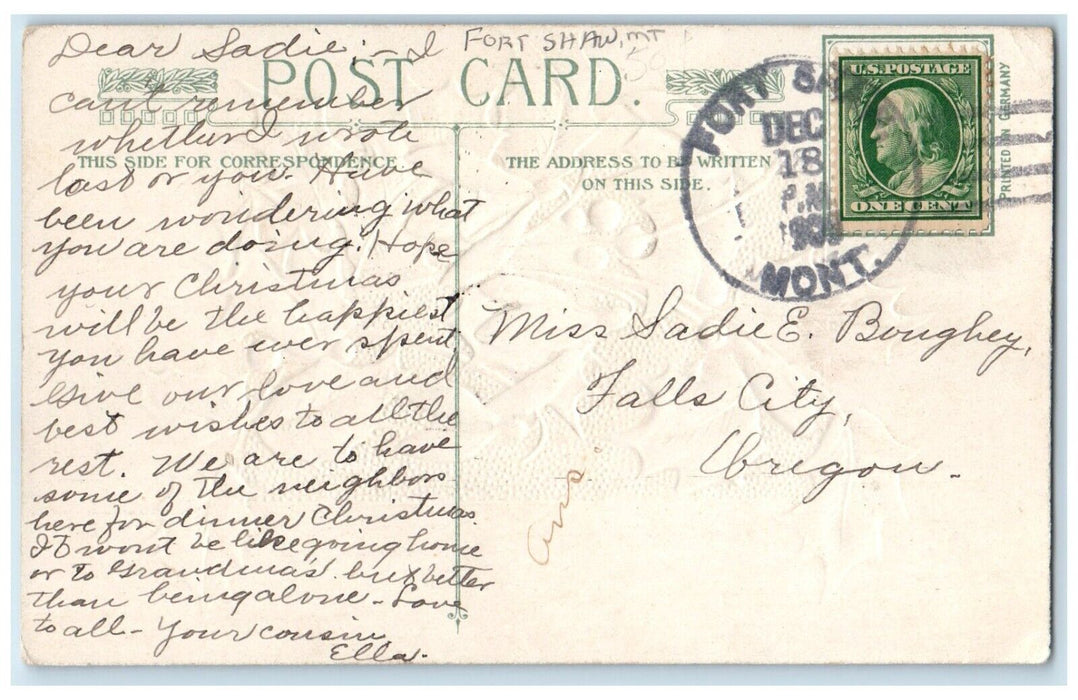 Dear Sadie:- I
FORT SHAW, MT
50
POST CARD.
can't remember
whether I wrote
THIS SIDE FOR CORRESPONDENCE.
last or you. Have
been wondering what
you are doing. Hope
your Christmas
will be the happiest
you have ever spent.
Give our love and
best wishes to all the
rest. We are to have
some of the neighbors
here for dinner Christmas.
It wont be like going home
or to Grandma's but better
than being alone - Love
to all - Your cousin,
Ella.
THE ADDRESS TO BE WRITTEN
ON THIS SIDE.
FORT
DEC
18
P.M.
MONT.
U.S. POSTAGE
ONE CENT
PRINTED IN GERMANY
Miss Sadie E. Boughey,
Falls City,
Oregon.
Ans.